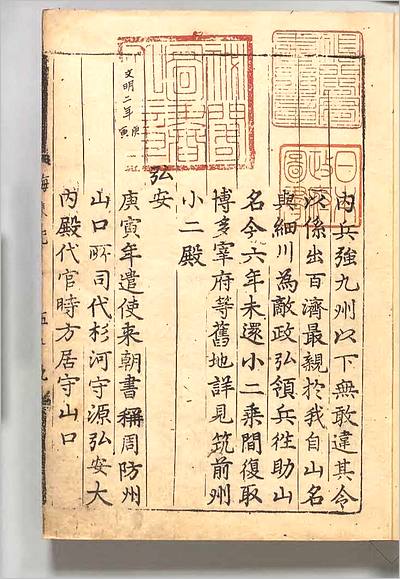 內兵強九州以下無敢違其令
以係出百濟最親於我自山名
與細川為敵政弘領兵徃助山
名今六年未還小二乗間復取
博多宰府等舊地詳見筑前州
小二殿
弘安
文明二年庚寅
庚寅年遣使来朝書稱周防州
山口所司代杉河守源弘安大
內殿代官時方居守山口
海東記